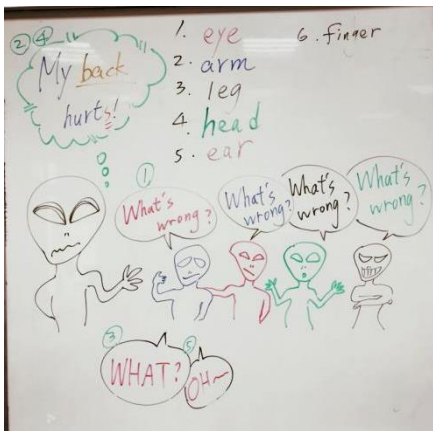 ② ④
My back
hurts!
1. eye
2. arm
3. leg
4 head
5. ear
6. finger
①
What's
wrong?
What's
wrong?
What's
wrong?
What's
wrong?
③
WHAT?
⑤
OH~